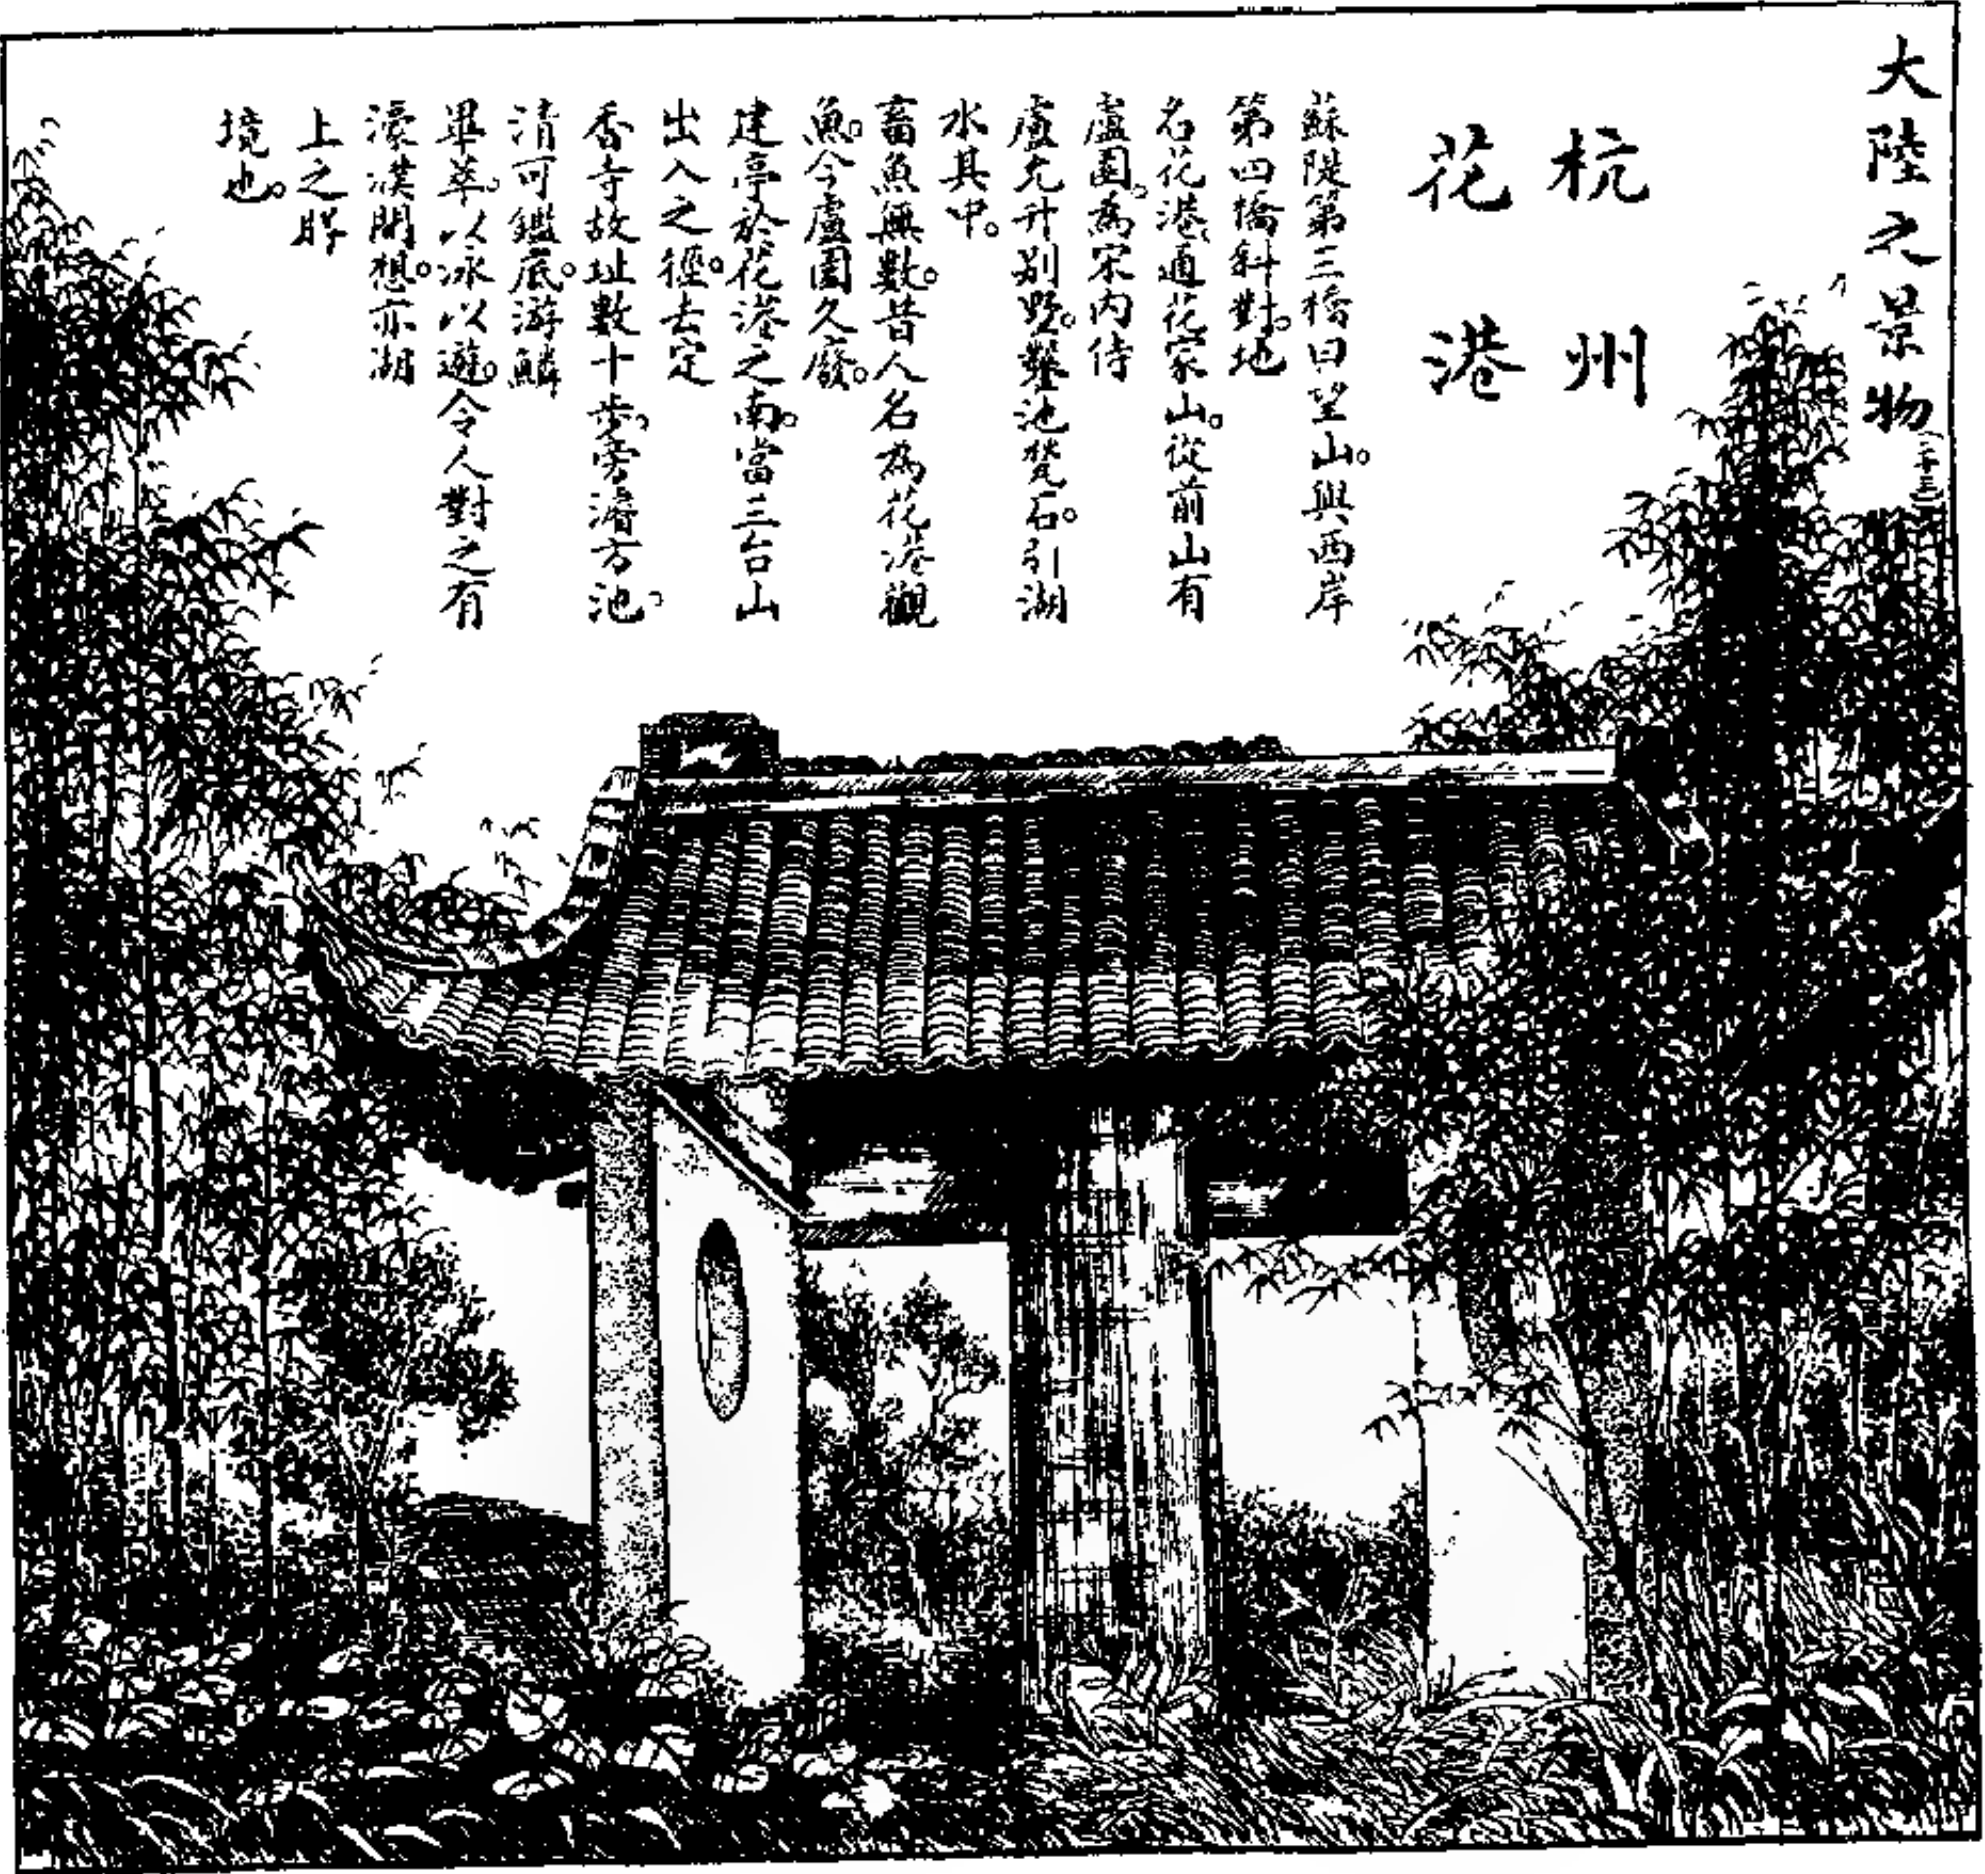 大陸之景物(二十三)
杭州
花港
蘇隄第三橋曰望山。與西岸
第四橋斜對。地
名花港。通花家山。從前山有
盧園。為宋內侍
盧允升別墅。鑿池甃石。引湖
水其中。
畜魚無數。昔人名為花港觀
魚。今盧園久廢。
建亭於花港之南。當三台山
出入之徑。去定
香寺故址數十步。旁濬方池。
清可鑑底。游鱗
畢萃。以泳以遊。令人對之有
濠濮間想。亦湖
上之勝
境也。